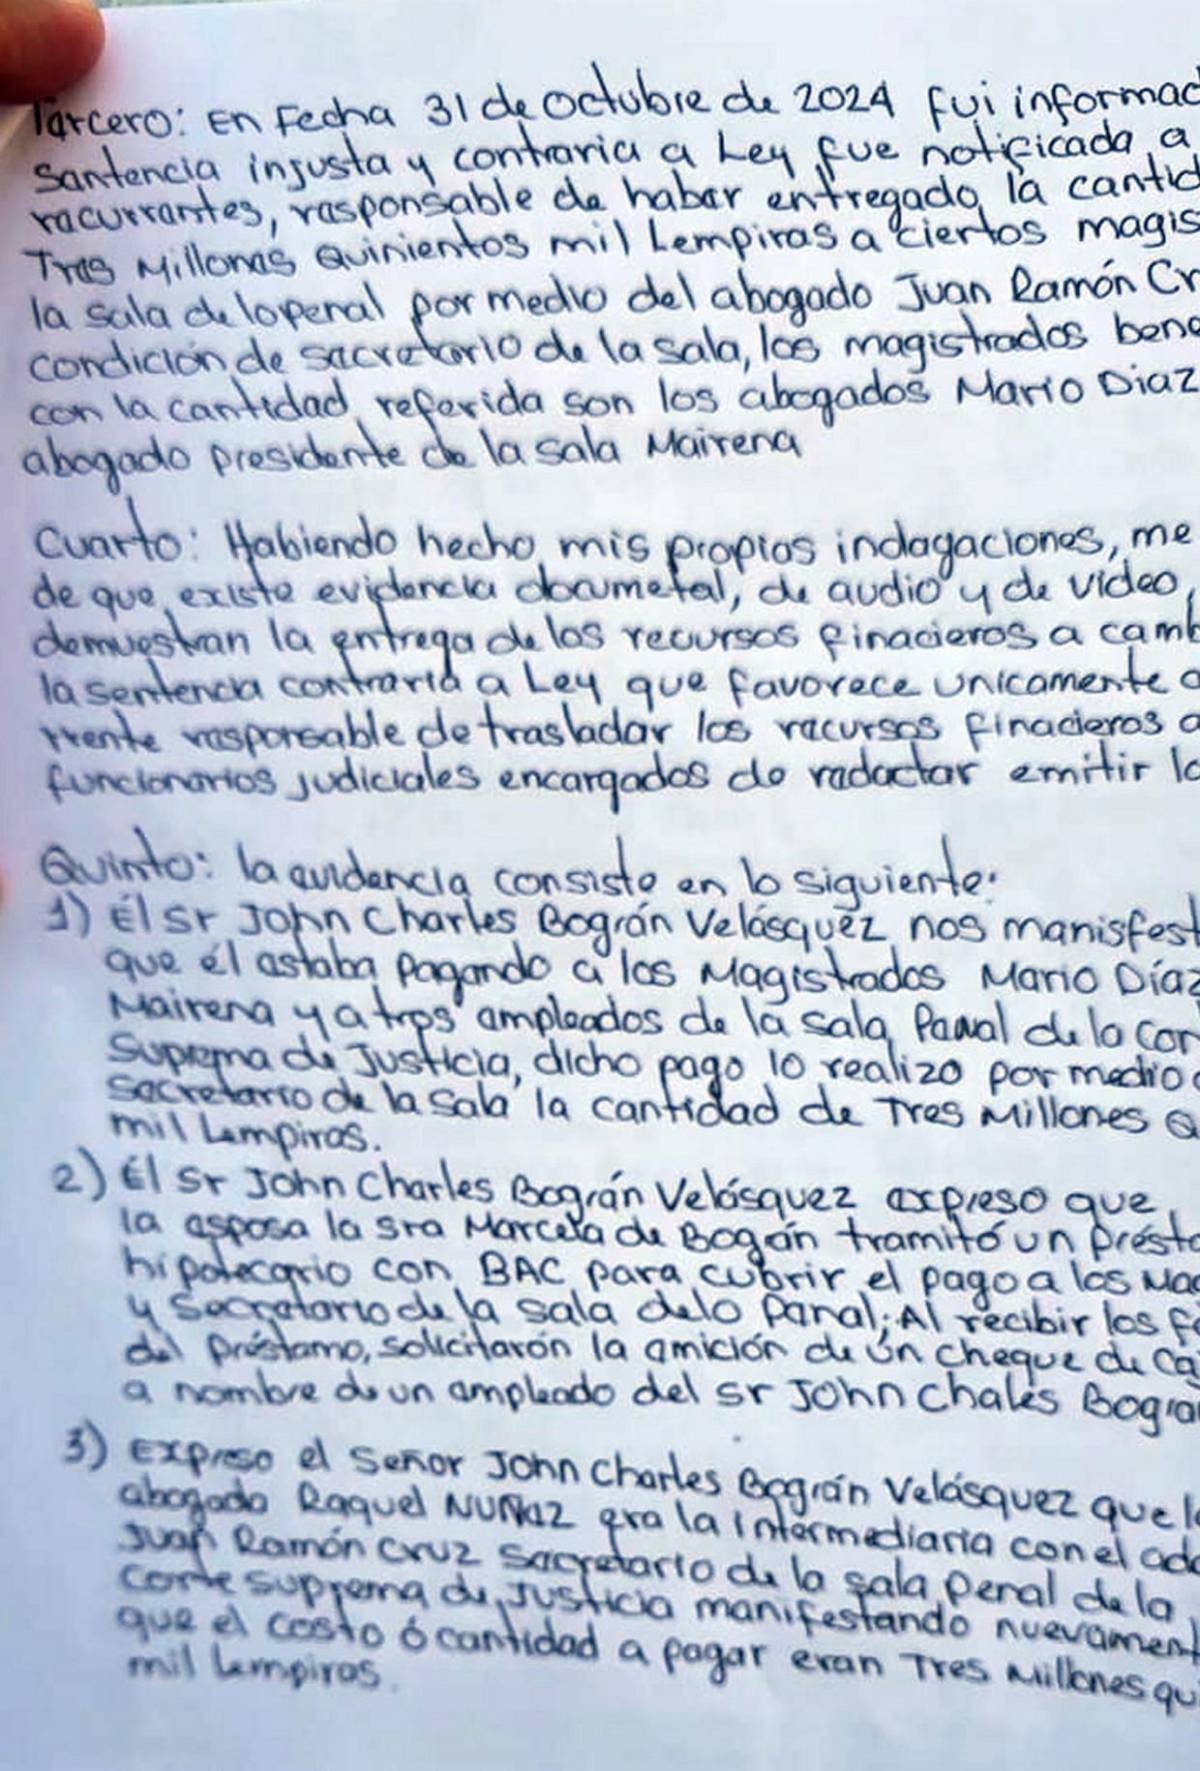 Tercero: En Fecha 31 de Octubre de 2024 fui informad
Sentencia injusta y contraria a Ley fue notificada a
recurrentes, responsable de haber entregado la cantid
Tres Millones Quinientos mil Lempiras a ciertos magis
la sala de lo penal por medio del abogado Juan Ramón Cr
condición de secretario de la sala, los magistrados bene
con la cantidad referida son los abogados Mario Diaz
abogado presidente de la sala Mairena
Cuarto: Habiendo hecho mis propias indagaciones, me
de que existe evidencia documetal, de audio y de video,
demuestran la entrega de los recursos finacieros a camb
la sentencia contraria a Ley que favorece unicamente a
rrente responsable de trasladar los recursos finacieros a
funcionarios judiciales encargados de redactar emitir la
Quinto: la evidencia consiste en lo siguiente:
1) Él Sr John Charles Bográn Velásquez nos manisfest
que él estaba pagando a los Magistrados Mario Díaz
Mairena y a tres empleados de la sala Penal de la Cor
Suprema de Justicia, dicho pago lo realizo por medio d
Secretario de la Sala la cantidad de Tres Millones Q
mil Lempiras.
2) Él Sr John Charles Bográn Velásquez expreso que
la esposa la Sra Marcela de Bogán tramitó un présta
hipotecario con BAC para cubrir el pago a los Mag
y Secretario de la sala de lo Penal; Al recibir los fo
del préstamo, solicitarón la emición de ún cheque de Caj
a nombre de un empleado del Sr John Chales Bográ
3) Expreso el Señor John Charles Bográn Velásquez que la
abogada Raquel NUÑEZ era la intermediaria con el
Juan Ramón Cruz Secretario de la sala penal de la
Corte suprema de Justicia manifestando nuevament
que el costo ó cantidad a pagar eran Tres Millones qu
mil Lempiras.